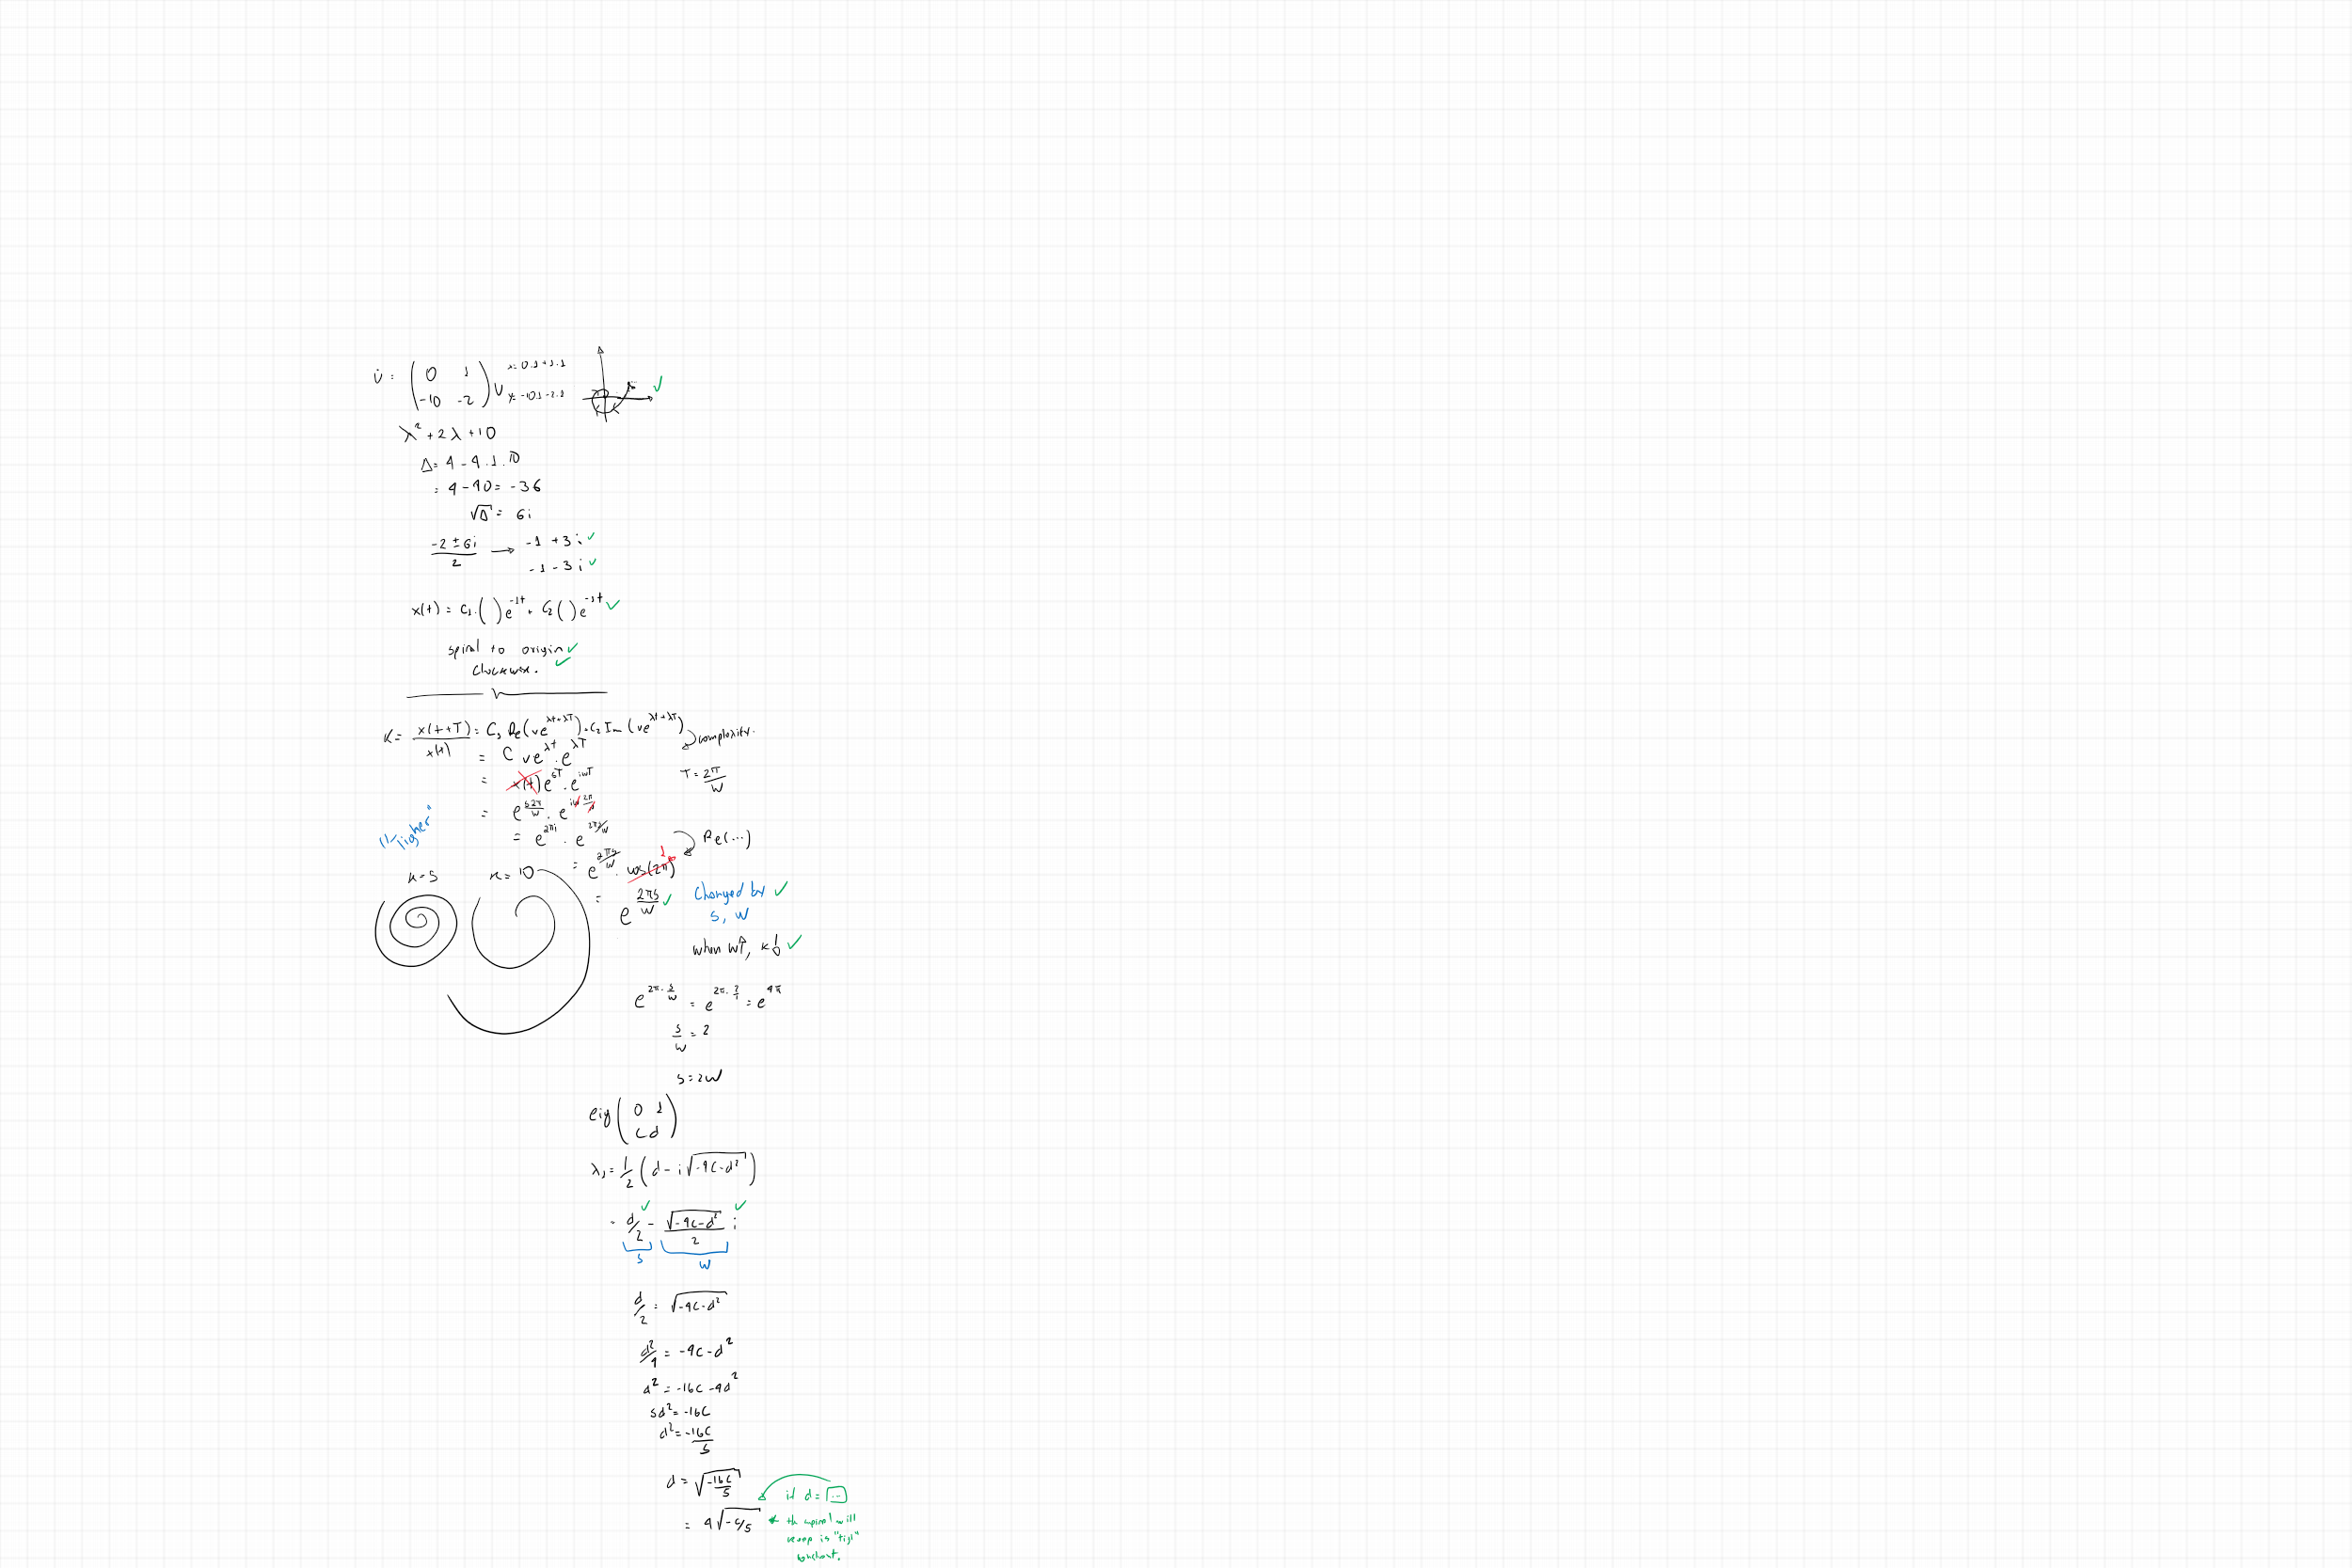 U̇ = ( 0 1 ) U ẋ= 0.1+1.1
( -10 -2 ) ẏ= -10.1-2.1
λ² + 2λ + 10
Δ= 4 - 4.1.10
= 4 - 40 = -36
√Δ = 6i
(-2 ± 6i)/2 → -1 + 3i
-1 - 3i
x(t) = C₁.( )e^(-1t) + C₂( )e^(-1t)
spiral to origin
Clockwise.
K = x(t+T)/x(t) = C₁ Re(ve^(λt+λT)) + C₂ Im(ve^(λt+λT))
complexity.
= C ve^(λt) . e^(λT)
= x(t) e^(sT) . e^(iwT)
T = 2π/w
= e^(s2π/w) . e^(iw 2π/w)
"Tigher"
= e^(2πi) . e^(2πs/w)
Re(...)
= e^(2πs/w) . cos(2π) 1
K=5 K=10
= e^(2πs/w)
Changed by
s, w
when w↑, K↓0
e^(2π. s/w) = e^(2π. 2/1) = e^(4π)
s/w = 2
s = 2w
eig( 0 1 )
( c d )
λ₁ = 1/2 ( d - i √(-4c-d²) )
= d/2 - √(-4c-d²)/2 i
s w
d/2 = √(-4c-d²)
d²/4 = -4c-d²
d² = -16c -4d²
5d² = -16c
d² = -16c/5
d = √(-16c/5)
if d = ...
= 4√(-c/5)
the spiral will
keep is "tigt"
constant.